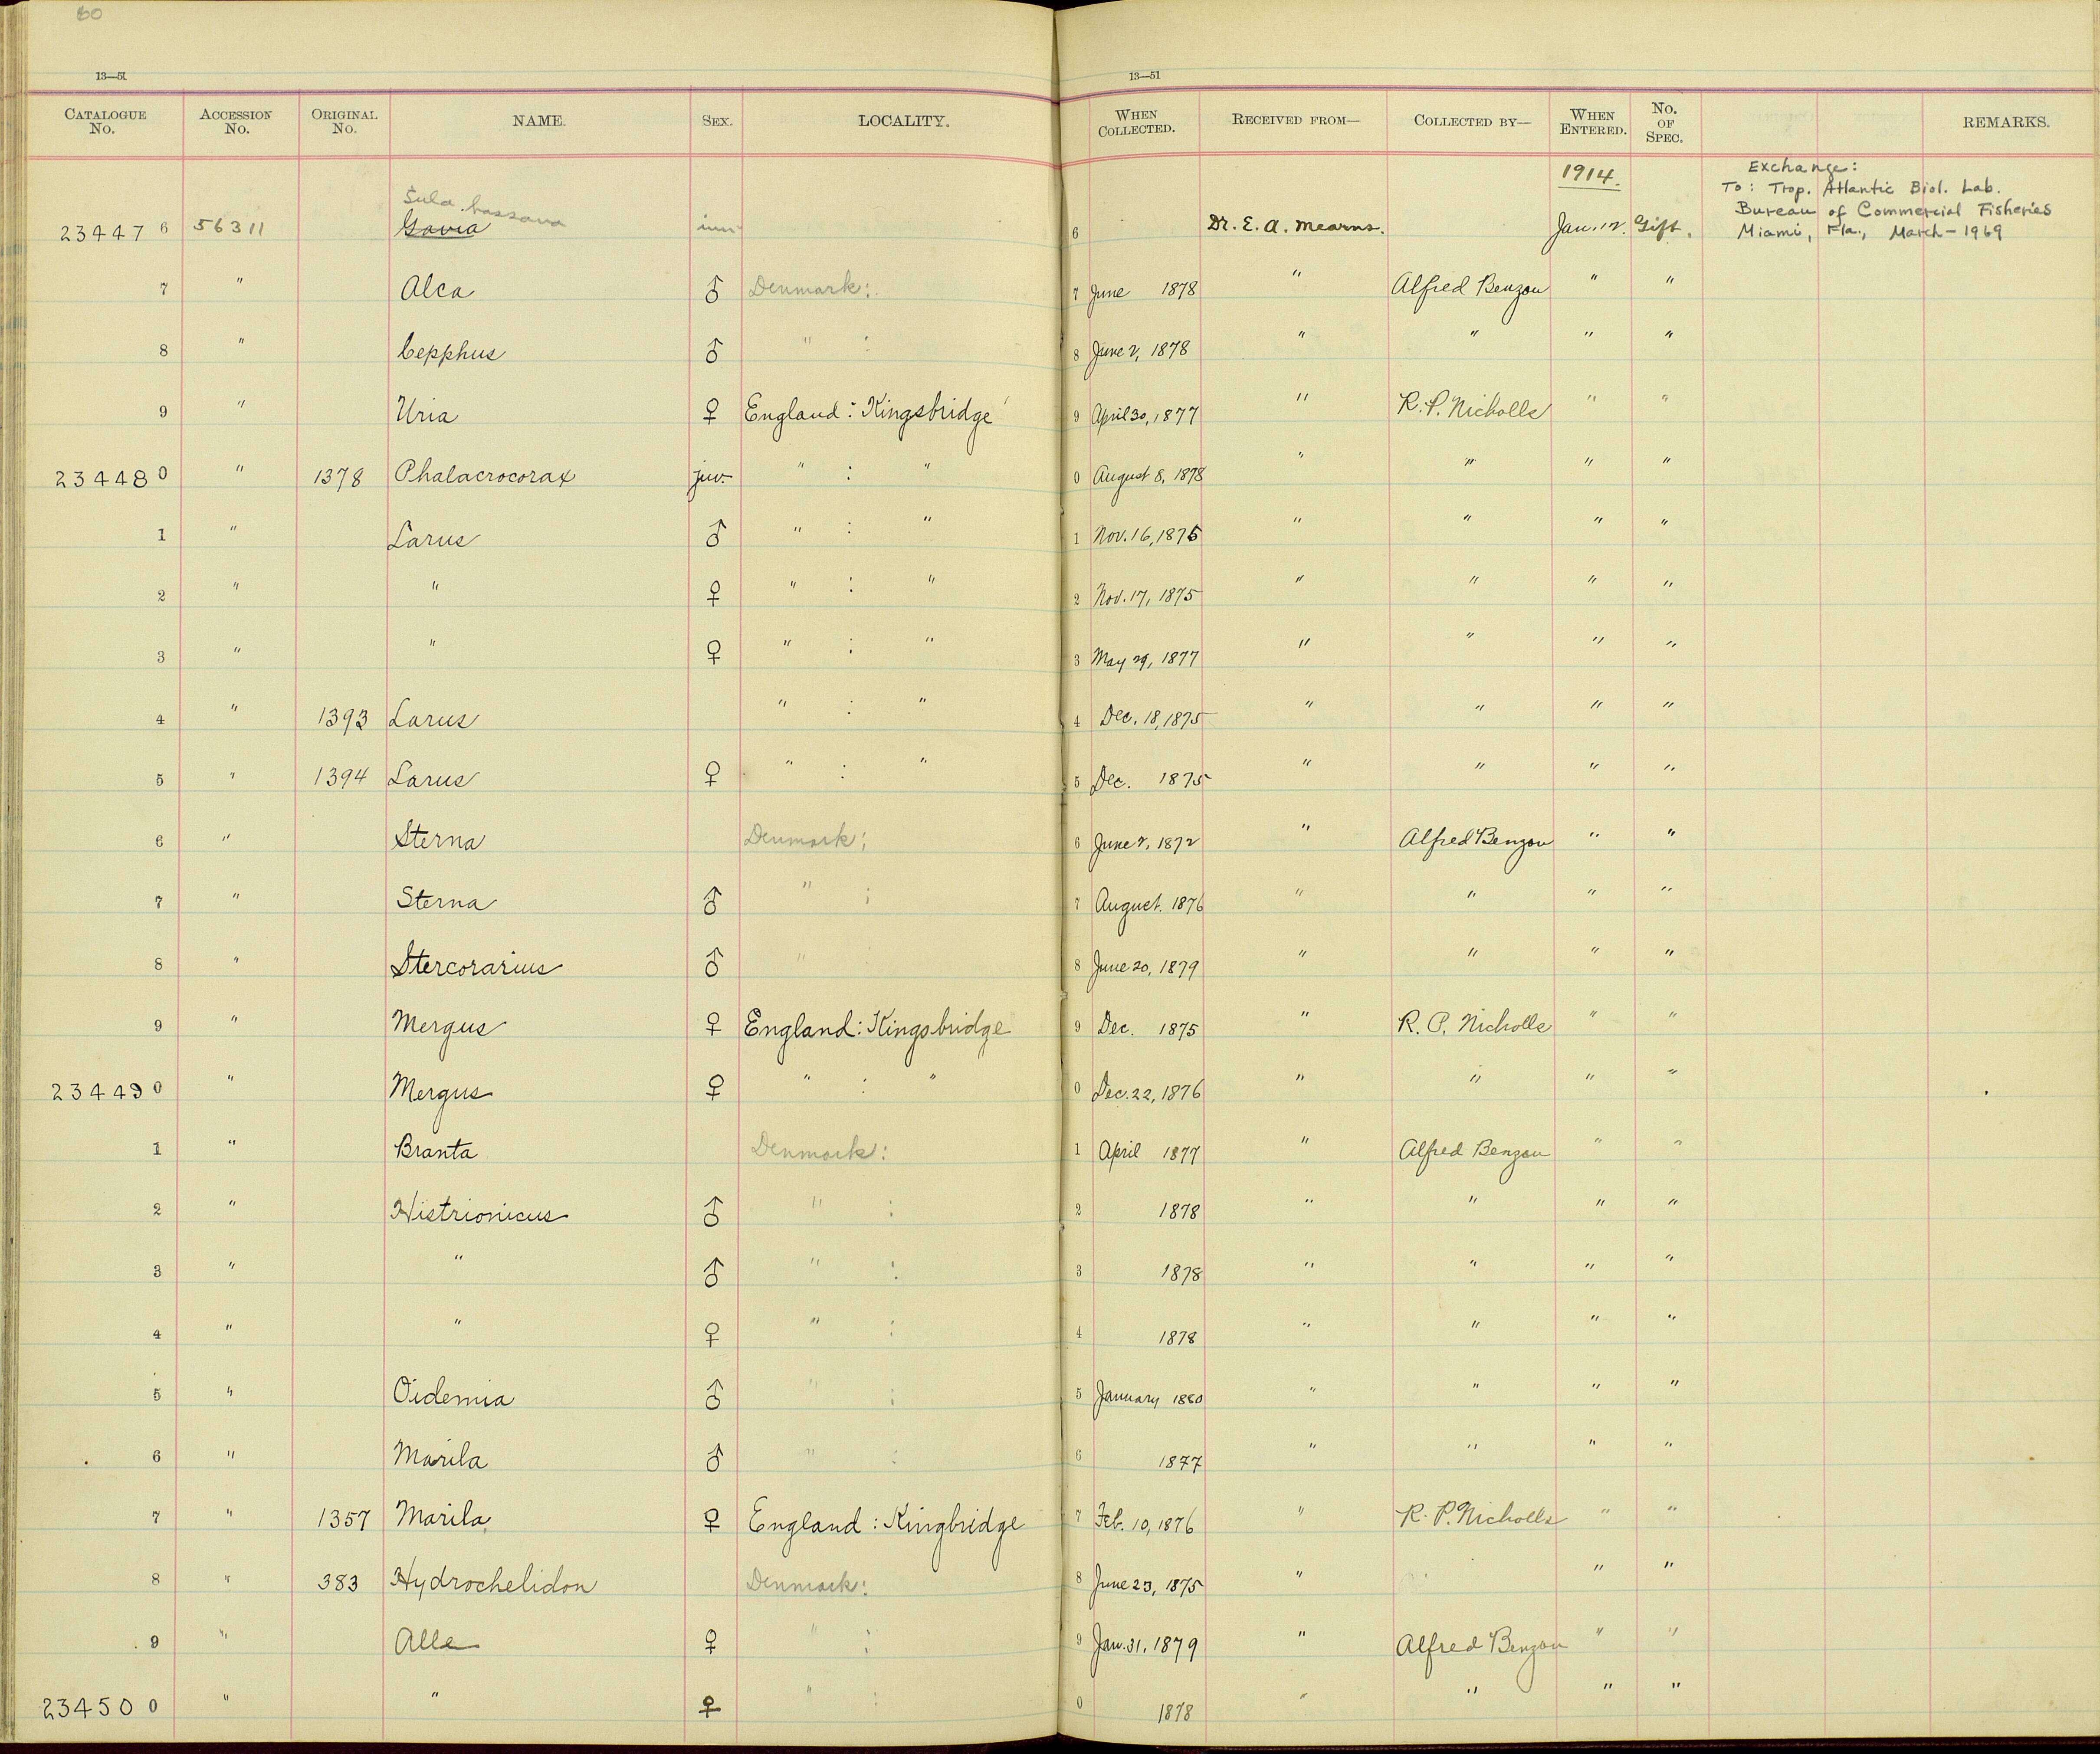 60
13—51 13—51
CATALOGUE No. ACCESSION No. ORIGINAL No. NAME. SEX. LOCALITY. WHEN COLLECTED. RECEIVED FROM— COLLECTED BY— WHEN ENTERED. No. OF SPEC. REMARKS.
1914. Exchange:
To: Trop. Atlantic Biol. Lab.
Bureau of Commercial Fisheries
Miami, Fla., March - 1969
Sula bassana
23447 6 56311 Gavia imm 6 Dr. E. A. Mearns. Jan. 12. Gift.
7 " Alca ♂ Denmark: 7 June 1878 " Alfred Benzon " "
8 " Cepphus ♂ " : 8 June 2, 1878 " " " "
9 " Uria ♀ England: Kingsbridge 9 April 30, 1877 " R. P. Nicholls " "
23448 0 " 1378 Phalacrocorax juv. " : " 0 August 8, 1878 " " " "
1 " Larus ♂ " : " 1 Nov. 16, 1875 " " " "
2 " " ♀ " : " 2 Nov. 17, 1875 " " " "
3 " " ♀ " : " 3 May 29, 1877 " " " "
4 " 1393 Larus " : " 4 Dec. 18, 1875 " " " "
5 " 1394 Larus ♀ " : " 5 Dec. 1875 " " " "
6 " Sterna Denmark: 6 June 2, 1872 " Alfred Benzon " "
7 " Sterna ♂ " : 7 August. 1876 " " " "
8 " Stercorarius ♂ " 8 June 20, 1879 " " " "
9 " Mergus ♀ England: Kingsbridge 9 Dec. 1875 " R. P. Nicholls " "
23449 0 " Mergus ♀ " : " 0 Dec. 22, 1876 " " " "
1 " Branta Denmark: 1 April 1877 " Alfred Benzon " "
2 " Histrionicus ♂ " : 2 1878 " " " "
3 " " ♂ " : 3 1878 " " " "
4 " " ♀ " : 4 1878 " " " "
5 " Oidemia ♂ " : 5 January 1880 " " " "
6 " Marila ♂ " : 6 1877 " " " "
7 " 1357 Marila ♀ England: Kingbridge 7 Feb. 10, 1876 " R. P. Nicholls " "
8 " 383 Hydrochelidon Denmark: 8 June 23, 1875 " " "
9 " Alle ♀ " : 9 Jan. 31, 1879 " Alfred Benzon " "
23450 0 " " ♀ " : 0 1878 " " " "